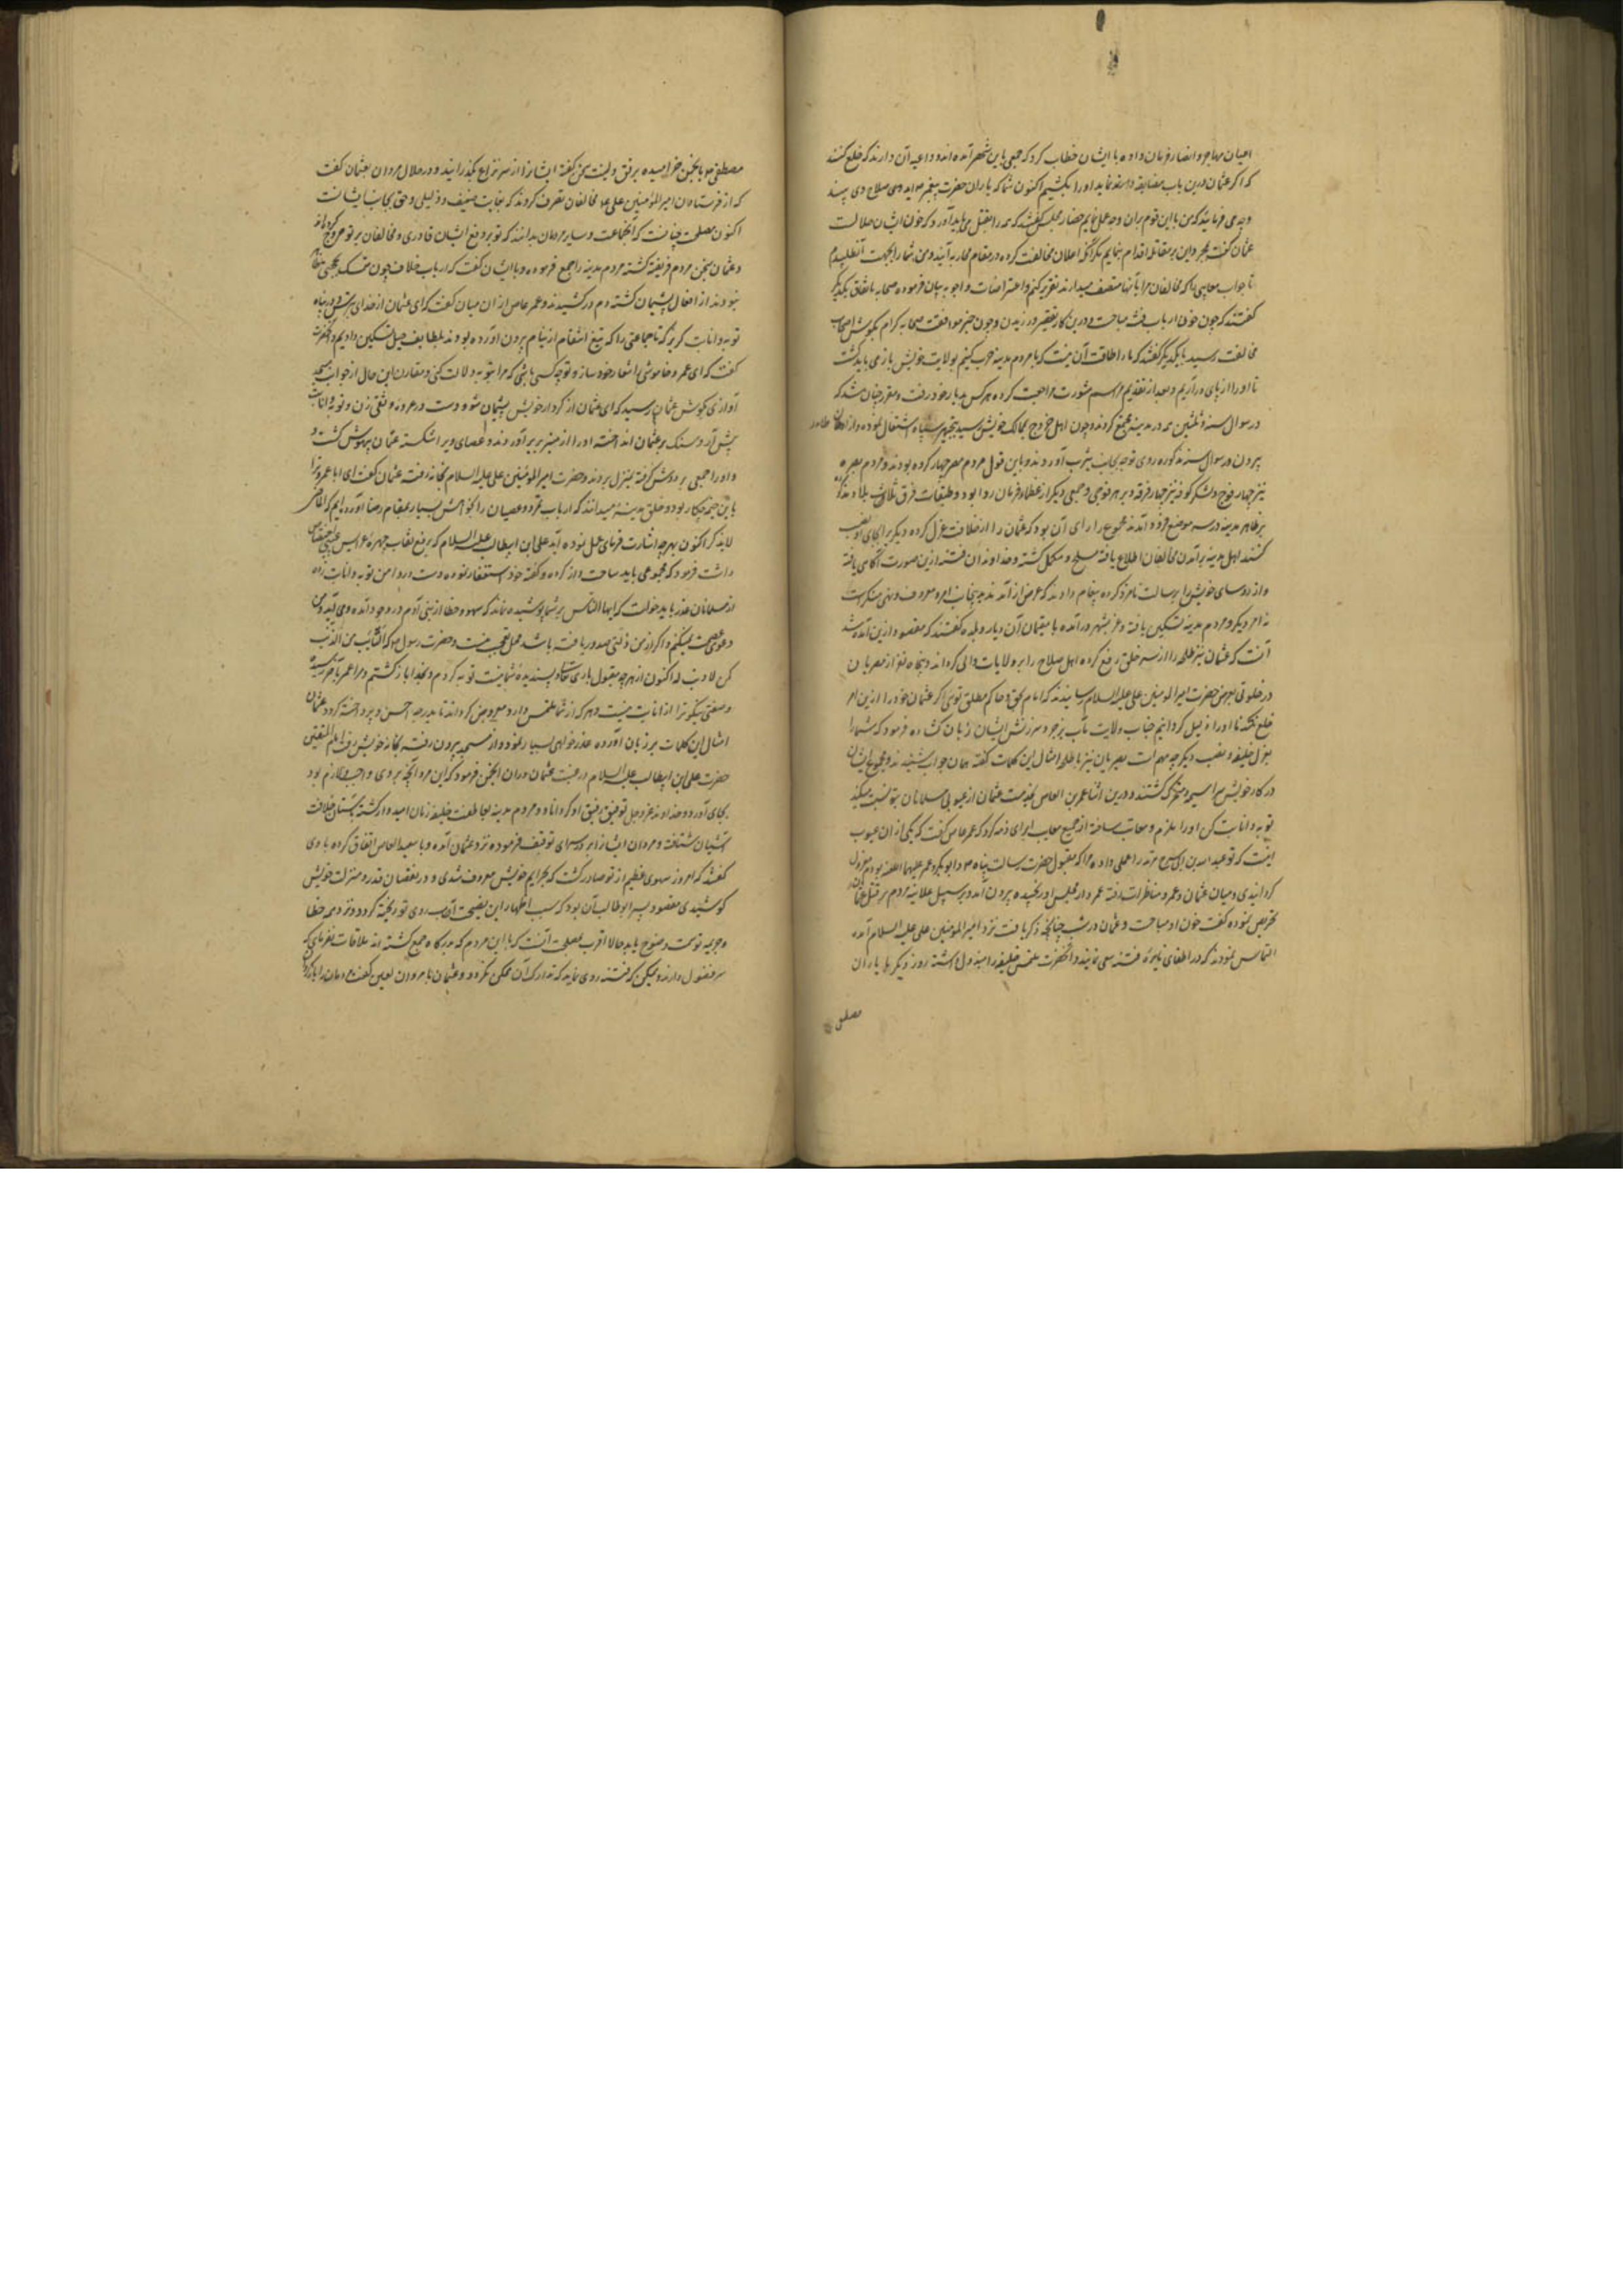 اعیان مهاجر و انصار فرمان داده با ایشان خطاب کرد که جمعی باین شهر آمده اند و داعیه آن دارند که خلع کنند
که اگر عثمان درین باب مضایقه نماید او را بکشیم اکنون شما که یاران حضرت پیغمبر صلاح می بیند
و چه می فرمایند که من با این قوم بران وجه عمل نمایم حضار مجلس گفتند که همه را بقتل می باید آورد که خون ایشان حلالست
عثمان گفت بمجرد این بر مقاتله اقدام ننمایم مگر آنکه اعلان مخالفت کرده در مقام محاربه آیند و من شما را بجهت آن طلبیدم
تا جواب معایبی که مخالفان مرا بآنها متصف میدارند تقریر کنم و اعتراضات و اجوبه بیان فرموده صحابه باتفاق یکدیگر
گفتند که چون خون ارباب فتنه مباحست درین کار تقصیر ورزیدن و چون خبر موافقت صحابه کرام بگوش اصحاب
مخالفت رسید با یکدیگر گفتند که ما را طاقت آن نیست که با مردم مدینه حرب کنیم بولایت خویش باز می باید گشت
تا او را از پای در آریم و بعد از تقدیم مراسم مشورت مراجعت کرده هر کس بدیار خود رفت و مقرر چنان شد که
در سوال سنه ثلثین همه در مدینه مجتمع گردند و چون اهل خروج بممالک خویش رسید بتجهیز سپاه اشتغال نموده و از
بیرون در سوال سنه مذکوره روی توجه بجانب یثرب آوردند و باین قول مردم مصر چهار کرده بودند و مردم بصره
نیز چهار فوج و لشکر کوفه نیز چهار فرقه و بر هر فوجی و جمعی دیگر از عظما فرمان روا بود و طبقات فرق ثلاث
بر ظاهر مدینه در سه موضع فرود آمدند مجموع را رای آن بود که عثمان را از خلافت عزل کرده دیگری را بجای او نصب
کنند اهل مدینه بر آمدن مخالفان اطلاع یافته مسلح و مکمل گشته و خداوندان فتنه ازین صورت آگاهی یافته
و از روسای خویش را برسالت نامزد کرده پیغام دادند که غرض از آمدن بدینجانب امر معروف و نهی منکر است
نه امر دیگر و مردم مدینه تسکین یافته و بشهر در آمده با مقیمان آن دیار و بلده گفتند که مقصود ازین آمد شد
آنست که عثمان شر ظلمه را از سر خلق رفع کرده اهل صلاح را بر ولایات والی گرداند و پنجاه نفر از مصریان
در خلوتی بعرض حضرت امیر المومنین علی علیه السلام رسانیدند که امام بحق و حاکم مطلق توئی اگر عثمان خود را ازین امر
خلع نکند ما او را کردانیم جناب ولایت مآب بزجر و سرزنش ایشان زبان کشاده فرمود که شما را
بعزل خلیفه و نصب دیگر چه مهم است بصریان نیز با طلحه امثال این کلمات گفته همان جواب شنیدند و مجموع ایشان
در کار خویش سراسیمه و متحیر گشتند و درین اثنا عمر بن العاص بخدمت عثمان از عیوبی مسلمانان بتو نسبت میکنند
توبه و انابت کن او را ملزم و معاتب ساخته از جمیع معایب ابرای ذمه کرد که عمر عاص گفت که یکی از آن عیوب
اینست که تو عبد الله بن ابی سرح مرتد را عمل داده مرا که مقبول حضرت رسالت پناه و ابو بکر و عمر بودم معزول
کردانیدی و میان عثمان و عمرو مناظرات رفته عمرو از مجلس او رنجیده بیرون آمد و بر سبیل علانیه مردم بر قتل عثمان
تحریص نموده گفت خون او مباحست و عثمان در شب چنانچه ذکر یافت نزد امیر المومنین علی علیه السلام آمده
التماس نمودند که در اطفای نایره فتنه سعی نمایند و آنحضرت ملتمس خلیفه را مبذول داشته روز دیگر با یاران
مصطفی
مصطفی بآن انجمن خرامیده برفق و لینت سخن گفته ایشانرا از سر نزاع بگذرانید و در خلال مروان بعثمان گفت
که از فرستادن امیر المؤمنین علی مخالفان تصرف کردند که بغایت ضعیف و ذلیلی و حق بجانب ایشانست
اکنون مصلحت چنانست که آنجماعت و سایر مردمان بدانند که تو بر دفع ایشان قادری و مخالفان بر تو خروج
و عثمان بسخن مردم فریفته گشته مردم مدینه را جمع فرموده و با ایشان گفت که ارباب خلاف چون متمسک بحجتی
نبودند از افعال پشیمان گشته دم در کشیدند و عمر عاص از ان میان گفت که ای عثمان از خدای بترس و در پناه
توبه و انابت گریز که تا جماعتی را که تیغ انتقام از نیام برون آورده بودند بلطایف حیل تسکین دادیم
گفت که ای عمر و خاموشی را شعار خود ساز و تو چه کسی باشی که مرا بتوبه دلالت کنی و مقارن این حال از جوانب مسجد
آوازی بگوش عثمان رسید که ای عثمان از کردار خویش پشیمان شو و دست در عروه وثقی زن و توبه و انابت
پیش آر و سنگ بر عثمان انداخته او را از منبر بزیر آوردند و عصای ویرا شکسته عثمان بیهوش گشت و
و او را جمعی بر دوش گرفته بمنزل بردند و حضرت امیر المؤمنین علی علیه السلام بخانه رفته عثمان گفت ای ابا عمر و ترا
با این چکار بود و خلق مدینه میدانند که ارباب تمرد و عصیان را بکوشش بسیار بمقام رضا آورده ایم
لابد کر اکنون بهر چه اشارت فرمای عمل نموده آید علی ابن ابیطالب علیه السلام که برفع نقاب چهره عرایس
داشت فرمود که مجموعی باید ساخت و از کرده و گفته خود استغفار نموده دست در دامن توبه و انابت زده
از مسلمانان عذر باید خواست که ایها الناس بر شما پوشیده نماند که سهو و خطا از بنی آدم در وجود آمده و می آید و من
دعوی عصمت نمیکنم و اگر از من ذلتی صدور یافته باشد محل تعجب نیست و حضرت رسول که التائب من الذنب
کمن لا ذنب له اکنون از هر چه مقبول باری و پسندیده شما نیست توبه کردم و بخدا باز گشتم و مرا عمر بآخر رسیده
و صفتی نیکوتر از انابت نیست و هر که از شما ملتمسی دارد معروض گرداند تا بدرجه احسن و پرداخته گردد عثمان
امثال این کلمات بر زبان آورده عذر خواهی بسیار نمود و از مسجد بیرون رفته بخانه خویش رفت امام المتقین
حضرت علی ابن ابیطالب علیه السلام در غیبت عثمان دران انجمن فرمود که این مرد آنچه بر وی واجب و لازم بود
بجای آورد و خداوند عز و جل توفیق رفیق او گرداناد و مردم مدینه بعاطفت خلیفه زمان امیدوار گشته بستان خلافت
آشیان شتافته و مروان ایشانرا بر در سرای توقیف فرموده نزد عثمان آمده و با سعید العاص اتفاق کرده با وی
گفتند که امروز سهوی عظیم از تو صادر گشت که بجرایم خویش معروف شدی و در نقصان قدر و منزلت خویش
کوشیدی مقصود پسر ابوطالب آن بود که سبب اظهار این نصیحت آب روی تو ریخته گردد و نزد همه خطا
و جریمه تو بوضوح یابد حالا اقرب بمصلحت آنست که با این مردم که بر درگاه جمع گشته اند ملاقات نفرمای که
سر فضول دارند و ممکن که فتنه روی نماید که تدارک آن ممکن نگردد و عثمان با مروان لعین گفت مردمان را باز گردان